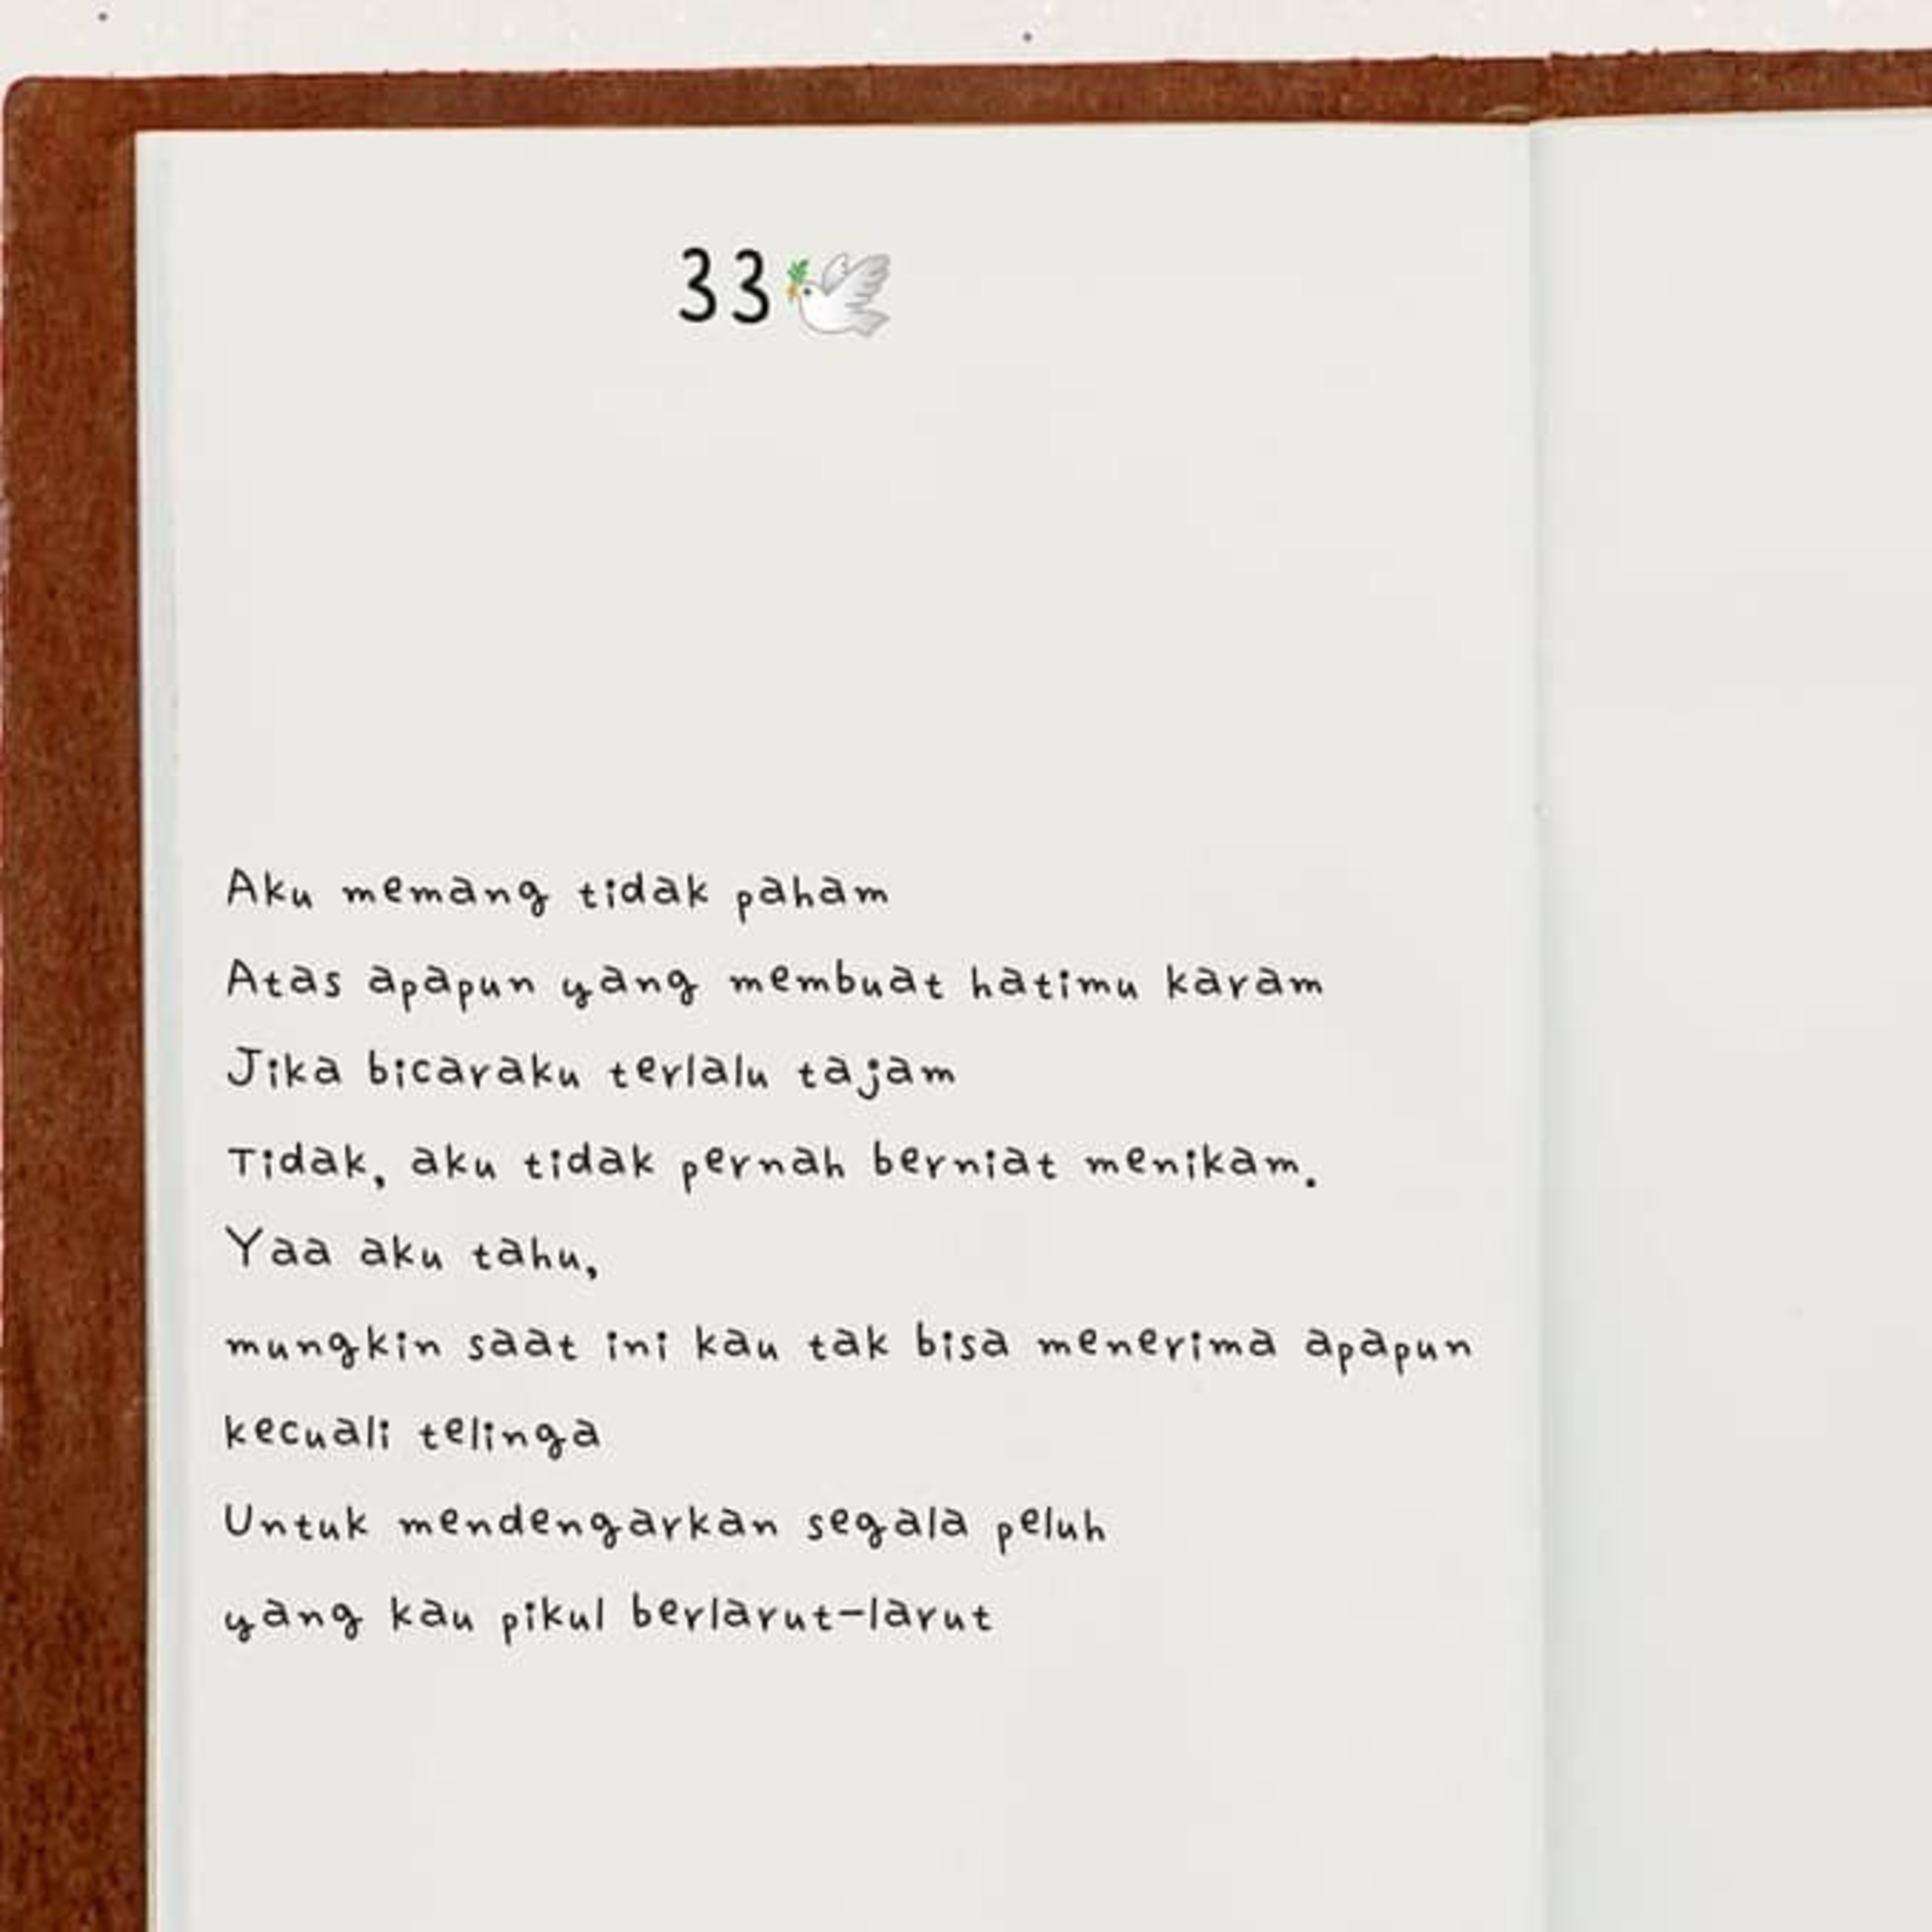 33🕊️
Aku memang tidak paham
Atas apapun yang membuat hatimu karam
Jika bicaraku terlalu tajam
Tidak, aku tidak pernah berniat menikam.
Yaa aku tahu,
mungkin saat ini kau tak bisa menerima apapun
kecuali telinga
Untuk mendengarkan segala peluh
yang kau pikul berlarut-larut